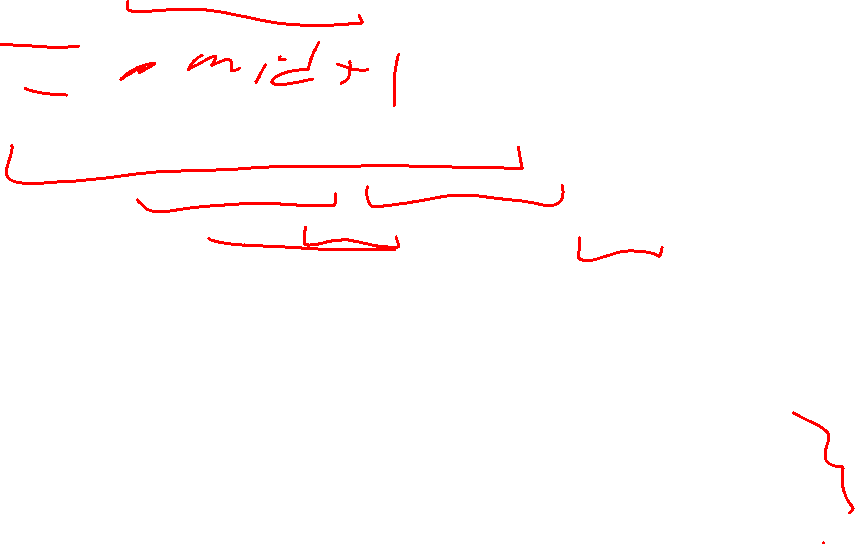 = mid + 1